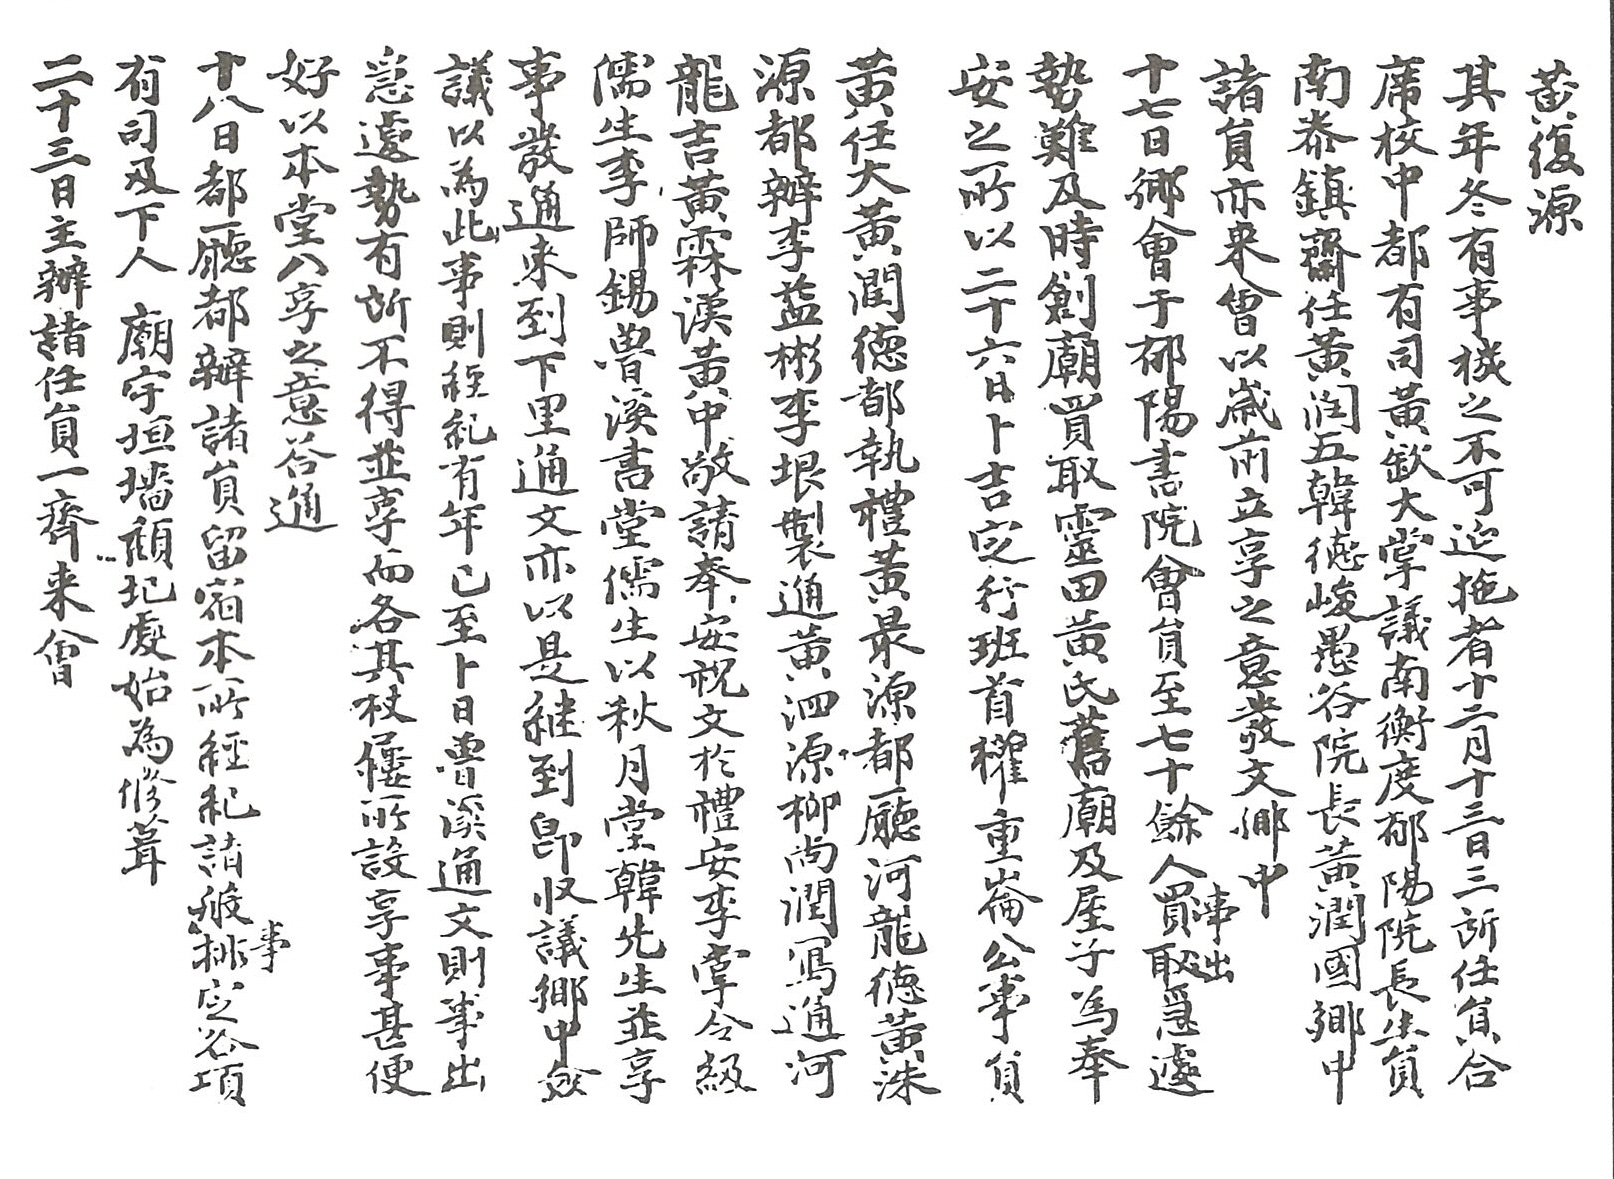 黃復源
其年冬有事機之不可迆拖者十二月十三日三所任員合
席校中都有司黃欽大掌議南衡度郁陽院長生員
南泰鎮齋任黃潤五韓德峻愚谷院長黃潤國鄉中
諸員亦來會以歲前立享之意發文鄉中
十七日鄉會于郁陽書院會員至七十餘人買取事出急遽
勢難及時創廟買取靈田黃氏舊廟及屋子為奉
安之所以二十六日卜吉定行班首權重崙公事員
黃任大黃潤德都執禮黃最源都廳河龍德黃洙
源都辦李益彬李垠製通黃泗源柳尚潤寫通河
龍吉黃霖漢黃中敬請奉安祝文於禮安李掌令級
儒生李師錫魯溪書堂儒生以秋月堂韓先生並享
事發通來到下里通文亦以是繼到卽收議鄉中僉
議以為此事則經紀有年已至卜日魯溪通文則事出
急遽勢有所不得並享而各其杖屨所設享事甚便
好以本堂入享之意答通
十八日都廳都辦諸員留宿本所經紀諸般事排定各項
有司及下人 廟宇垣墻頹圮處始為修葺
二十三日主辦諸任員一齊來會